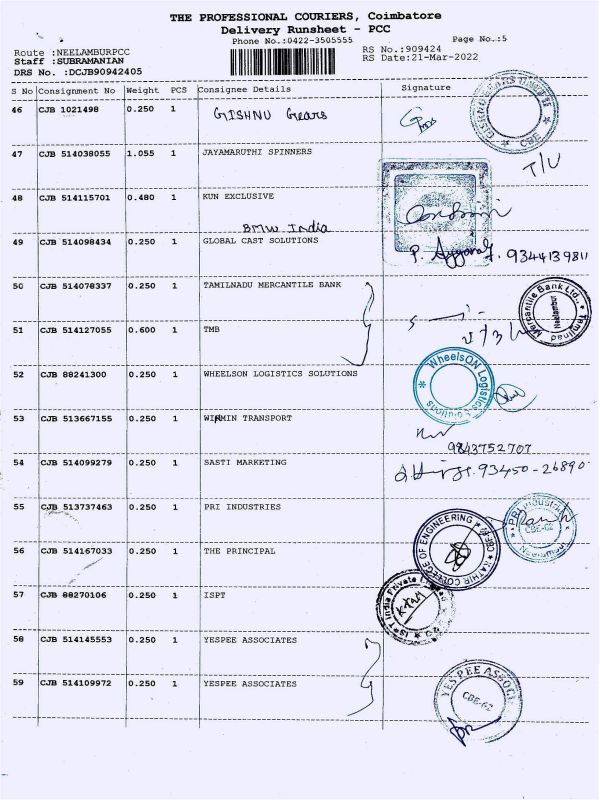 THE PROFESSIONAL COURIERS, Coimbatore
Delivery Runsheet - PCC
Phone No.:0422-3505555
Page No.:5
Route :NEELAMBURPCC
RS No.:909424
Staff :SUBRAMANIAN
RS Date:21-Mar-2022
DRS No. :DCJB90942405
S No Consignment No Weight PCS Consignee Details Signature
46 CJB 1021498 0.250 1 GISHNU Gears
GISHNU GEARS
CBE
47 CJB 514038055 1.055 1 JAYAMARUTHI SPINNERS
T/U
48 CJB 514115701 0.480 1 KUN EXCLUSIVE
BMW India
49 CJB 514098434 0.250 1 GLOBAL CAST SOLUTIONS
9344139811
50 CJB 514078337 0.250 1 TAMILNADU MERCANTILE BANK
Mercantile Bank Ltd., Tamilnad
Neelambur
51 CJB 514127055 0.600 1 TMB
52 CJB 88241300 0.250 1 WHEELSON LOGISTICS SOLUTIONS
WheelsON Logistics Solutions
53 CJB 513667155 0.250 1 WINMIN TRANSPORT
9843752707
54 CJB 514099279 0.250 1 SASTI MARKETING
93450-26890
55 CJB 513737463 0.250 1 PRI INDUSTRIES
PRI Industries
CBE-62
56 CJB 514167033 0.250 1 THE PRINCIPAL
KATHIR COLLEGE OF ENGINEERING
57 CJB 88270106 0.250 1 ISPT
ISPT India Private
58 CJB 514145553 0.250 1 YESPEE ASSOCIATES
59 CJB 514109972 0.250 1 YESPEE ASSOCIATES
YESPEE ASSOCI
CBE-62